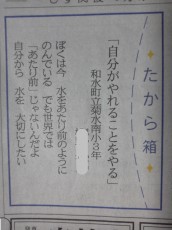 たから箱
「自分がやれることをやる」
和水町立菊水南小3年
ぼくは今 水をあたり前のように
のんでいる でも世界では
「あたり前」じゃないんだよ
自分から 水を 大切にしたい